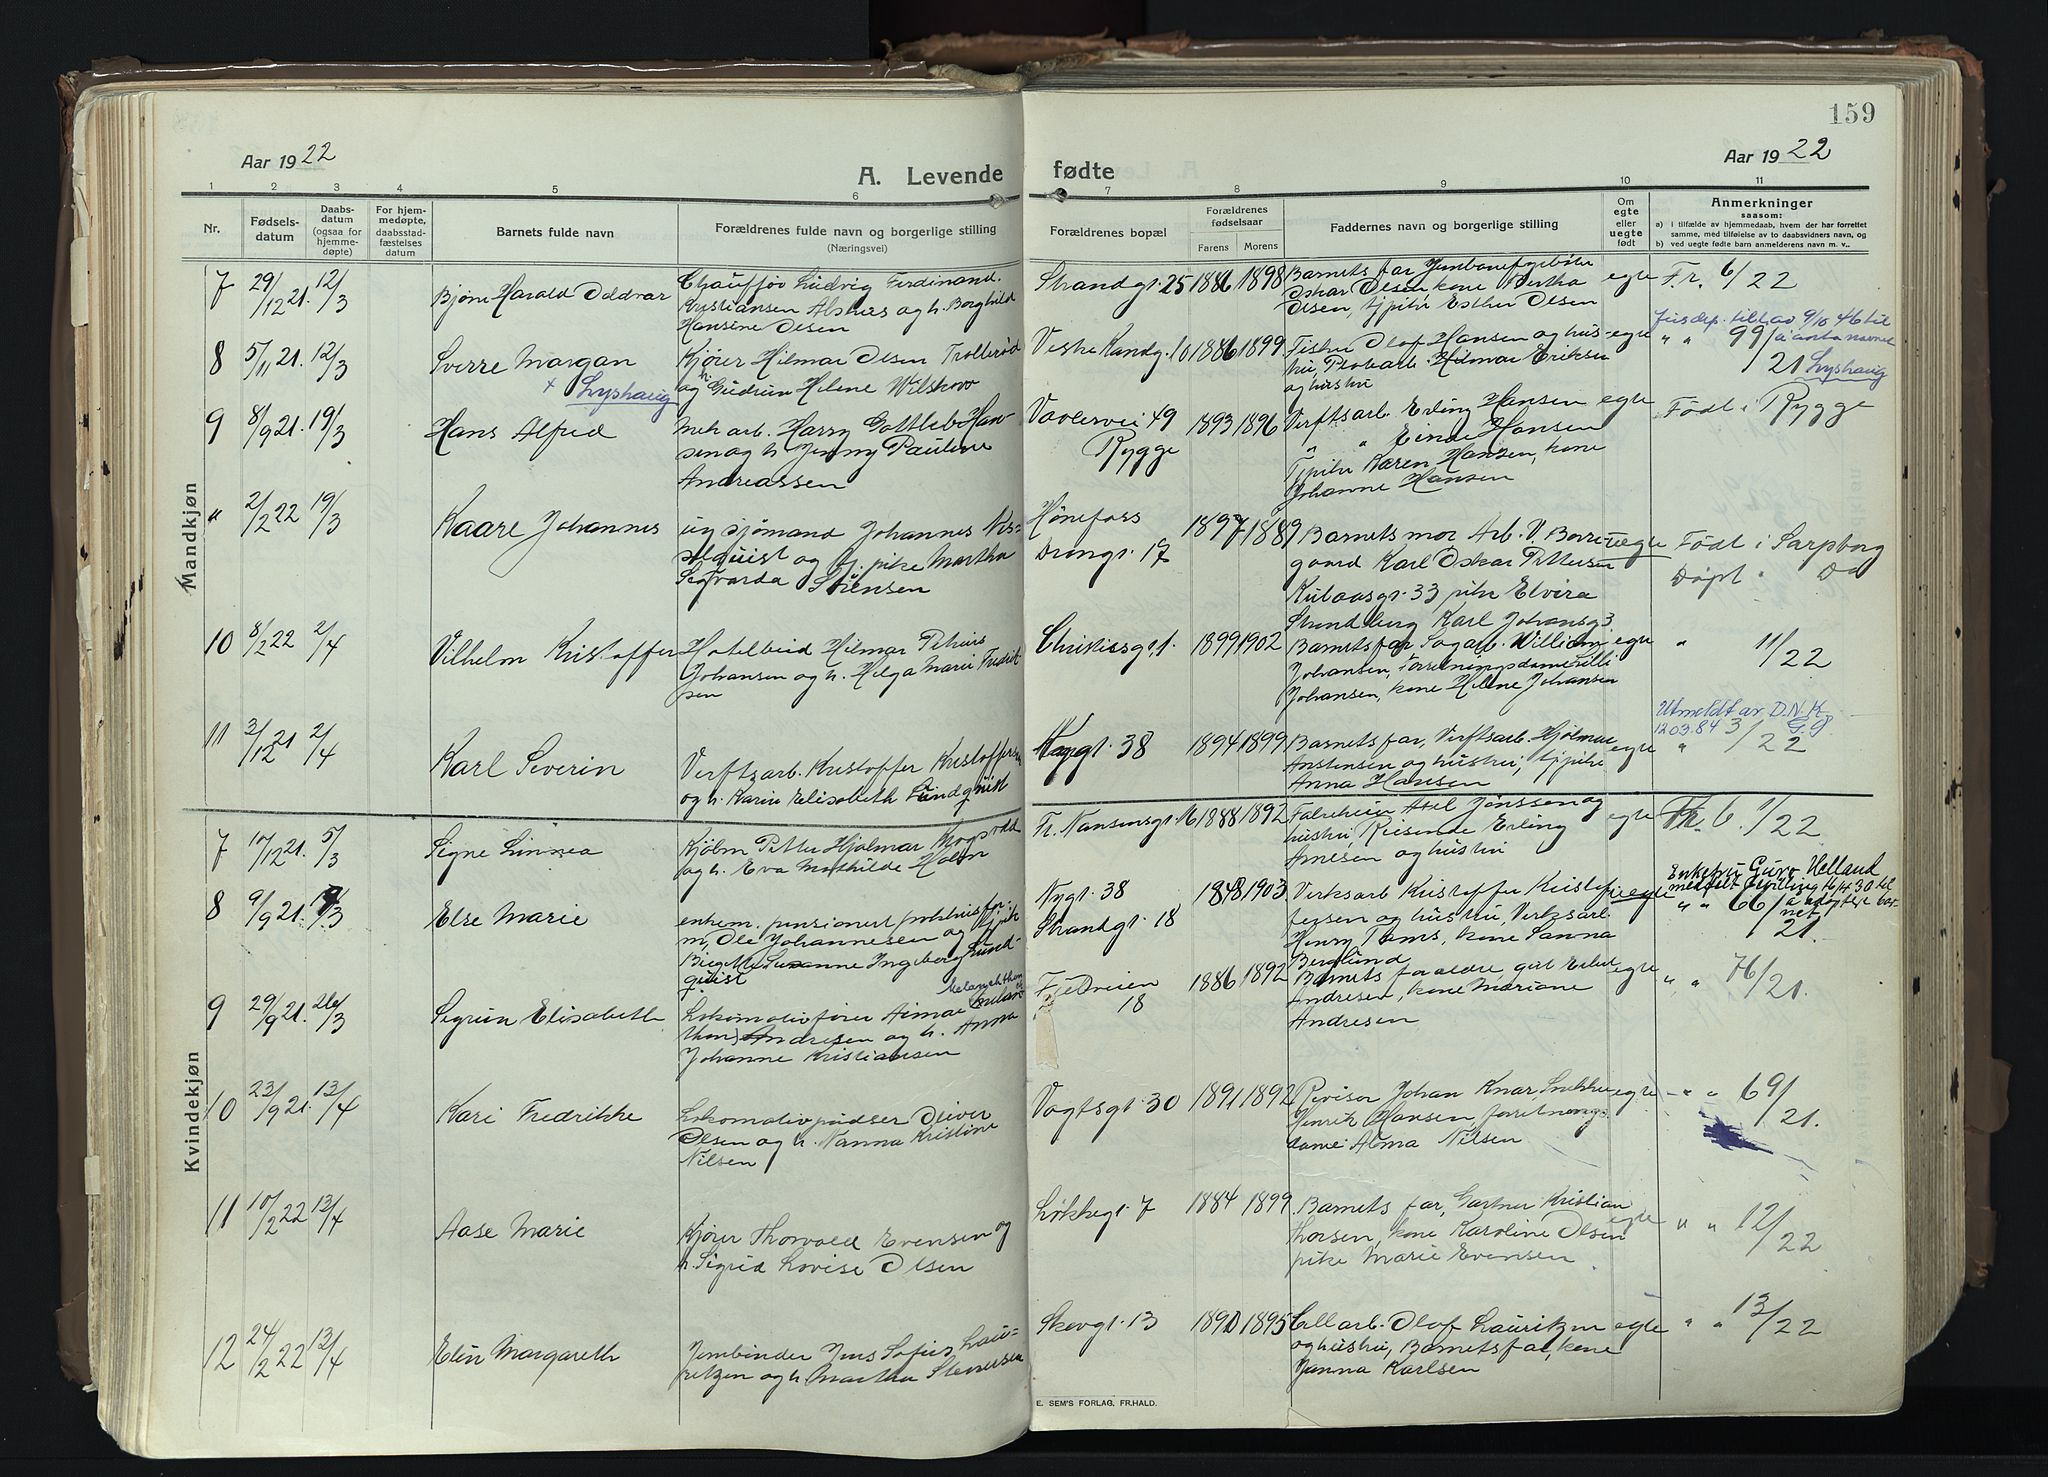 159
Aar 1922
A. Levende
fødte
Aar 1922
1 2 3 4 5 6 7 8 9 10 11
Nr.
Fødsels-
datum
Daabs-
datum
(ogsaa for
hjemme-
døpte)
For hjem-
medøpte,
daabsstad-
fæstelses
datum
Barnets fulde navn
Forældrenes fulde navn og borgerlige stilling
(Næringsvei)
Forældrenes bopæl
Forældrenes
fødselsaar
Farens Morens
Faddernes navn og borgerlige stilling
Om
egte
eller
uegte
født
Anmerkninger
saasom:
a) I tilfælde av hjemmedaab, hvem der har forrettet
samme, med tilføielse av to daabsvidners navn, og
b) ved uegte fødte barn anmelderens navn m. v..
Mandkjøn
7 29/12 21. 12/3 Bjørn Harald Oddvar
Chauffør Ludvig Ferdinand
Kristiansen Alsnes og h. Borghild
Hansine Olsen
Strandgt. 25 1886 1898
Barnets far
Oskar Olsen kone Bertha
Olsen, tjpike Esther Olsen
egte F.r. 6/22
8 5/11 21. 12/3 Sverre Morgan
+ Lyshaug
Kjører Hilmar Olsen Trollerød
og h. Gudrun Helene Wilskow
Vestre Kanalg. 10 1886 1899
Fisker Olof Hansen og hus-
tru, Hilmar Eriksen
og hustru
egte " " 99/21
9/10 46 til
å anta navnet
Lyshaug
9 8/9 21. 19/3 Hans Alfred
Mek arb. Harry Gottlieb Han-
sen og h. Jenny Pauline
Andreassen
Vaalervei 49
Rygge
1893 1896
Verftsarb. Erling Hansen
" " Einar Hansen
Tjpike Karen Hansen, kone
Johanne Hansen
egte Født i Rygge
" 2/2 22 19/3 Kaare Johannes
ug sjømand Johannes Nes-
selquist og tj. pike Martha
Sigvarda Sørensen
Hønefoss
Drongt. 17
1897 1889
Barnets mor Arb. V. Borre-
gaard Karl Oskar Pettersen
Kulaasgt. 33 pike Elvira
Strandberg Karl Johansg 3
uegte Født i Sarpborg
Døpt " Do
10 8/2 22 2/4 Vilhelm Kristoffer
Hotelbeid Hilmar
Johansen og h. Helga Marie Fredrik-
sen
Christiesgt. 1. 1899 1902
Barnets far, Sagarb. William
Johansen, forretningsdame Lilli
Johansen, kone Helene Johansen
egte " 11/22
11 3/12 21 2/4 Karl Severin
Verftsarb. Kristoffer Kristoffersen
og h. Karin Elisabeth Lundquist
Kongegt. 38 1894 1899
Barnets far, Verftsarb. Hjalmar
Anstensen og hustru, tjpike
Anna Hansen
egte " 3/22
Utmeldt av D.N.K.
12.03.84 G.G.
Kvindekjøn
7 10/12 21. 5/3 Signe Linnea
Petter Hjalmar
og h. Eva Mathilde Holm
Fr. Nansensgt. 16 1888 1892
Axel Jønssen og
hustru, Reisende Erling
Arnesen og hustru
egte Fr. 6. 1/22
8 9/9 21. 19/3 Else Marie
enkem. pensionert
Ole Johannesen og tjpike
Birgitte Susanne Ingeborg Lund-
quist
Nygt. 38
Strandgt. 18
1848 1903
Verksarb Kristoffer Kristof-
fersen og hustru, Verksarb.
Henry Toms, kone Sanna
Berglund
uegte " " 66/21.
Enkefru Guro Helland
meddelt bevilling 16/4 30 til
å adoptere bar-
net
9 29/9 21. 26/3 Sigrun Elisabeth
Lokomotivfører
Andresen og h. Anna
Johanne Kristiansen
Fjeldveien
18
1886 1892
Barnets foraldre,
Andresen, kone Mariane
Andresen
egte " " 76/21.
10 23/9 21. 13/4 Kari Fredrikke
Lokomotivpudser Oliver
Olsen og h. Nanna Kristine
Nilsen
Vogtsgt. 30 1891 1892
Revisor Johan Knar, Snekker
Henrik Hansen forretnings-
dame Alma Nilsen
egte " " 69/21.
11 10/2 22 13/4 Aase Marie
Kjører Thorvald Evensen og
h. Sigrid Lovise Olsen
Løkkegt. 7 1884 1899
Barnets far, Gartner Kristian
Thorsen, kone Karoline Olsen
pike Marie Evensen
egte " " 12/22
12 24/2 22 13/4 Elin Margareth
Jernbinder Jens Sofus Lau-
ritzen og h. Martha Stenersen
Skovgt. 13 1890 1895
Cellarb. Olof Lauritzen
og hustru, Barnets far, kone
Janna Karlsen
egte " " 13/22
E. SEM'S FORLAG, FR.HALD.